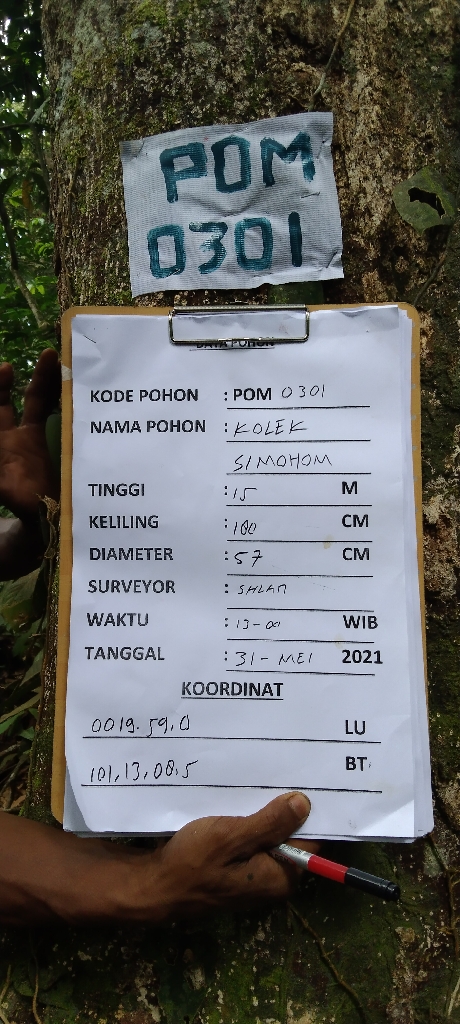 POM
0301
DATA POHON
KODE POHON : POM 0301
NAMA POHON : KOLEK
SIMOHOM
TINGGI : 15 M
KELILING : 180 CM
DIAMETER : 57 CM
SURVEYOR : SALAM
WAKTU : 13-00 WIB
TANGGAL : 31 - MEI 2021
KOORDINAT
0019.59,0 LU
101,13,08,5 BT